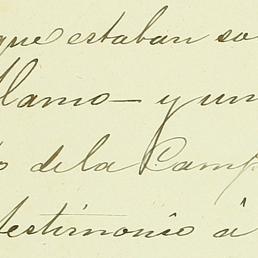 que estaban so
Alamo — y un
de la Camp
testimonio á